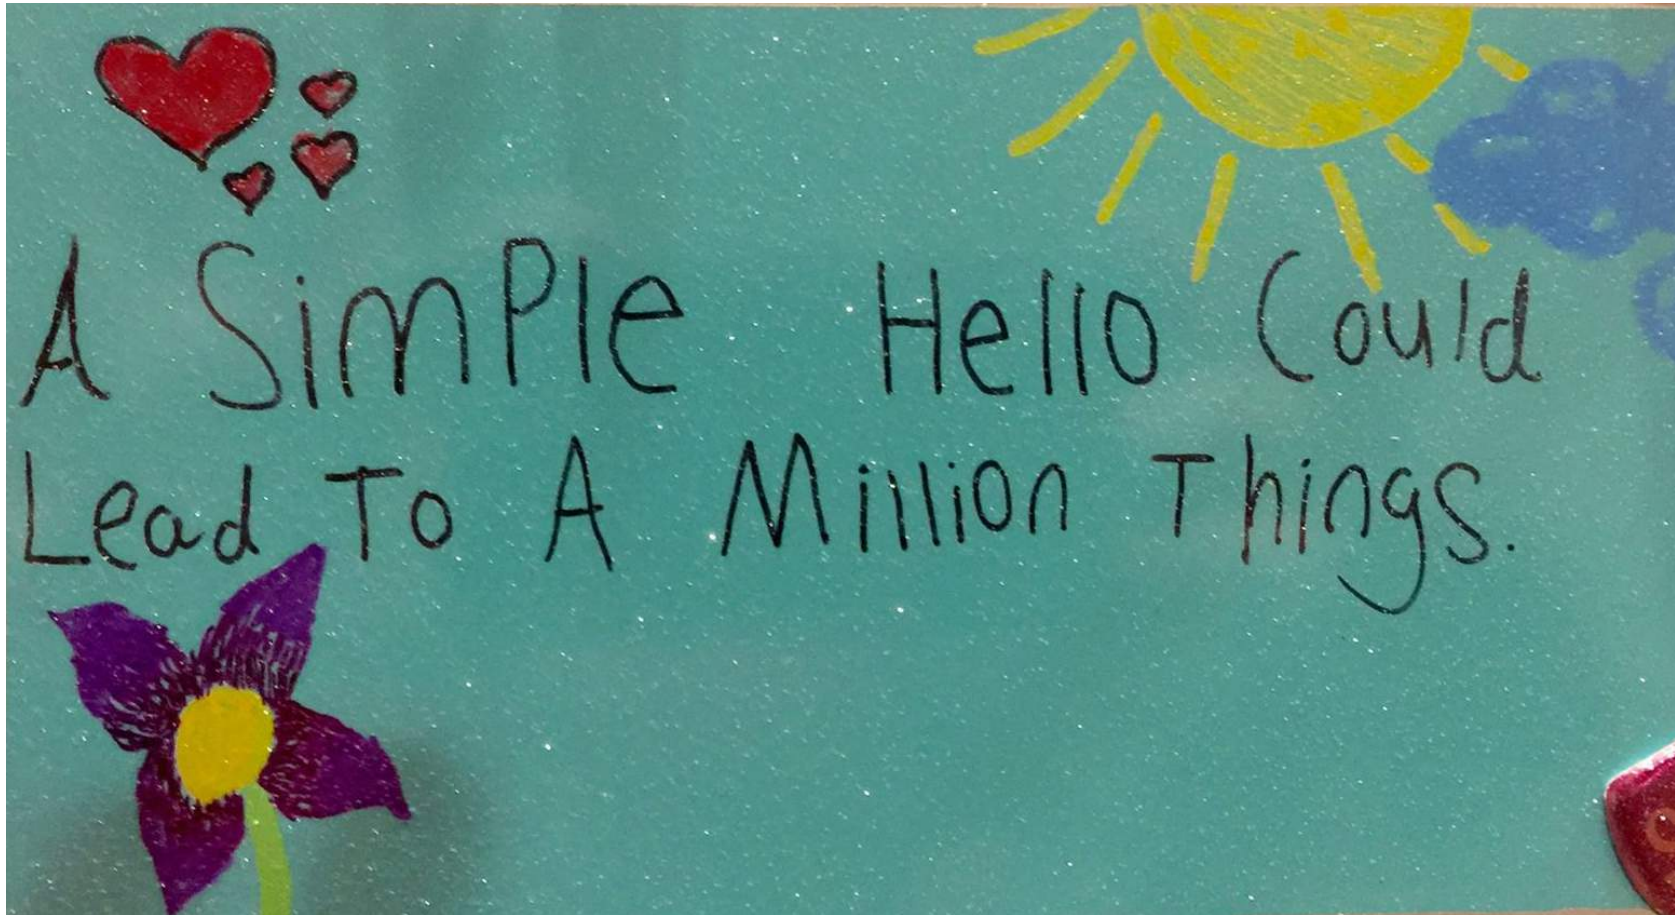 A SimPle Hello Could
Lead To A Million Things.